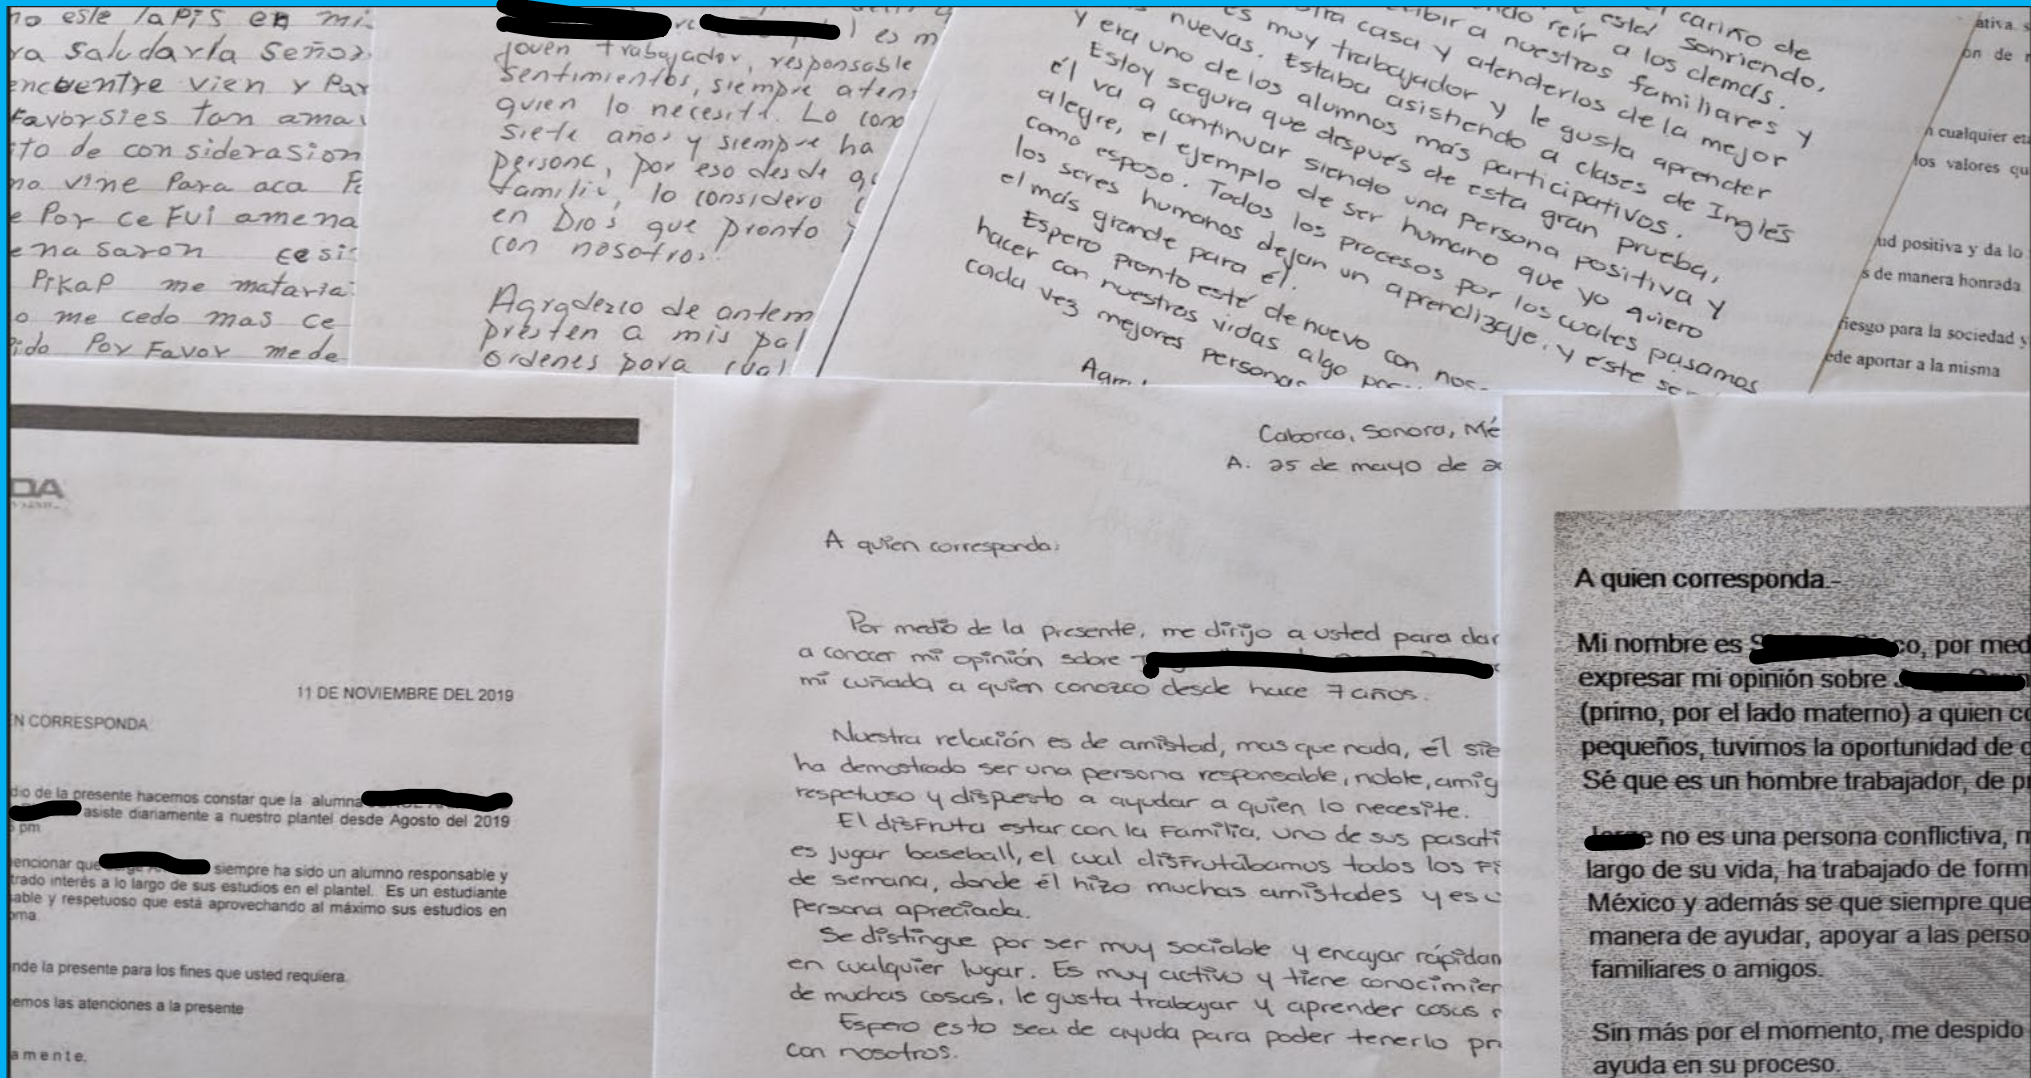 no este lapis en mi
ra saludarla Señor
encuentre vien y Par
Favorsies tan ama
ito de considerasion
no vine Para aca Po
e Por ce Fui amena
enasaron cesi
Pikap me mataria
o me cedo mas ce
pido Por Favor mede
es m
joven trabajador, responsable
sentimientos, siempre aten
quien lo necesita. Lo cono
siete años y siempre ha
persona, por eso desde q
familia, lo considero
en Dios que pronto
con nosotros.
Agradezco de antem
presten a mis pal
ordenes para cual
el cariño de
ndo reír a los demás.
cibir a nuestros familiares y
tra casa y atenderlos de la mejor
es muy trabajador y le gusta aprender
nuevas. Estaba asistiendo a clases de Inglés
y era uno de los alumnos más participativos.
Estoy segura que después de esta gran prueba,
él va a continuar siendo una persona positiva y
alegre, el ejemplo de ser humano que yo quiero
como esposo. Todos los procesos por los cuales pasamos
los seres humanos dejan un aprendizaje, y este se
el más grande para él.
Espero pronto esté de nuevo con nos
hacer con nuestras vidas algo
cada vez mejores personas
ativa s
ón de
cualquier eta
los valores qu
ud positiva y da lo
s de manera honrada
riesgo para la sociedad y
ede aportar a la misma
DA
11 DE NOVIEMBRE DEL 2019
EN CORRESPONDA
dio de la presente hacemos constar que la alumna
asiste diariamente a nuestro plantel desde Agosto del 2019
pm
encionar que siempre ha sido un alumno responsable y
trado interés a lo largo de sus estudios en el plantel. Es un estudiante
sable y respetuoso que está aprovechando al máximo sus estudios en
oma.
nde la presente para los fines que usted requiera.
emos las atenciones a la presente
amente,
Caborca, Sonora, Mé
A. 25 de mayo de 2
A quien corresponda:
Por medio de la presente, me dirijo a usted para dar
a conocer mi opinión sobre
mi cuñada a quien conozco desde hace 7 años.
Nuestra relación es de amistad, mas que nada, él sie
ha demostrado ser una persona responsable, noble, amig
respetuoso y dispuesto a ayudar a quien lo necesite.
El disfruta estar con la familia, uno de sus pasati
es jugar baseball, el cual disfrutábamos todos los fi
de semana, donde él hizo muchas amistades y es u
persona apreciada.
Se distingue por ser muy sociable y encajar rápidan
en cualquier lugar. Es muy activo y tiene conocimien
de muchas cosas, le gusta trabajar y aprender cosas n
Espero esto sea de ayuda para poder tenerlo pr
con nosotros.
A quien corresponda.-
Mi nombre es S co, por med
expresar mi opinión sobre
(primo, por el lado materno) a quien co
pequeños, tuvimos la oportunidad de c
Sé que es un hombre trabajador, de pr
no es una persona conflictiva, n
largo de su vida, ha trabajado de form
México y además se que siempre que
manera de ayudar, apoyar a las perso
familiares o amigos.
Sin más por el momento, me despido
ayuda en su proceso.